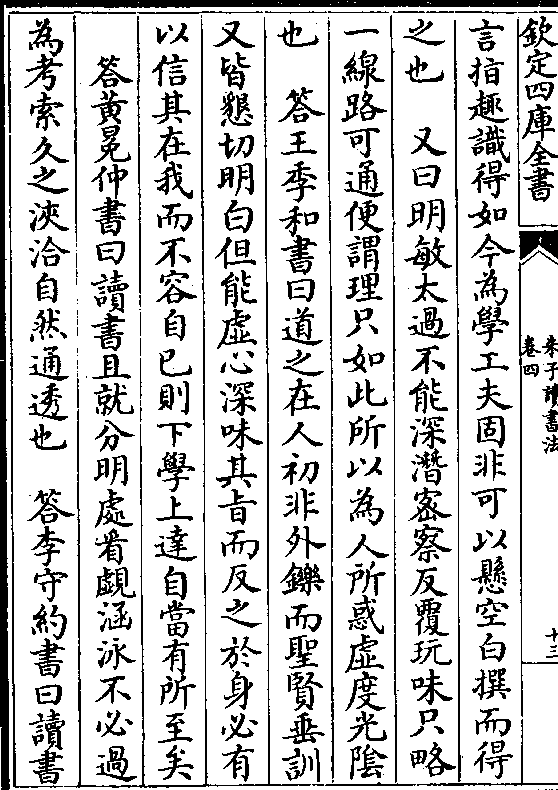 欽定四庫全書
朱子讀書法
卷四
十三
言指趣識得如今為學工夫固非可以懸空白撰而得
之也　又曰明敏太過不能深潛宻察反覆玩味只略
一線路可通便謂理只如此所以為人所惑虛度光陰
也　答王季和書曰道之在人初非外鑠而聖賢垂訓
又皆懇切明白但能虛心深味其旨而反之於身必有
以信其在我而不容自已則下學上達自當有所至矣
答黃冕仲書曰讀書且就分明處看覷涵泳不必過
為考索久之浹洽自然通透也　答李守約書曰讀書